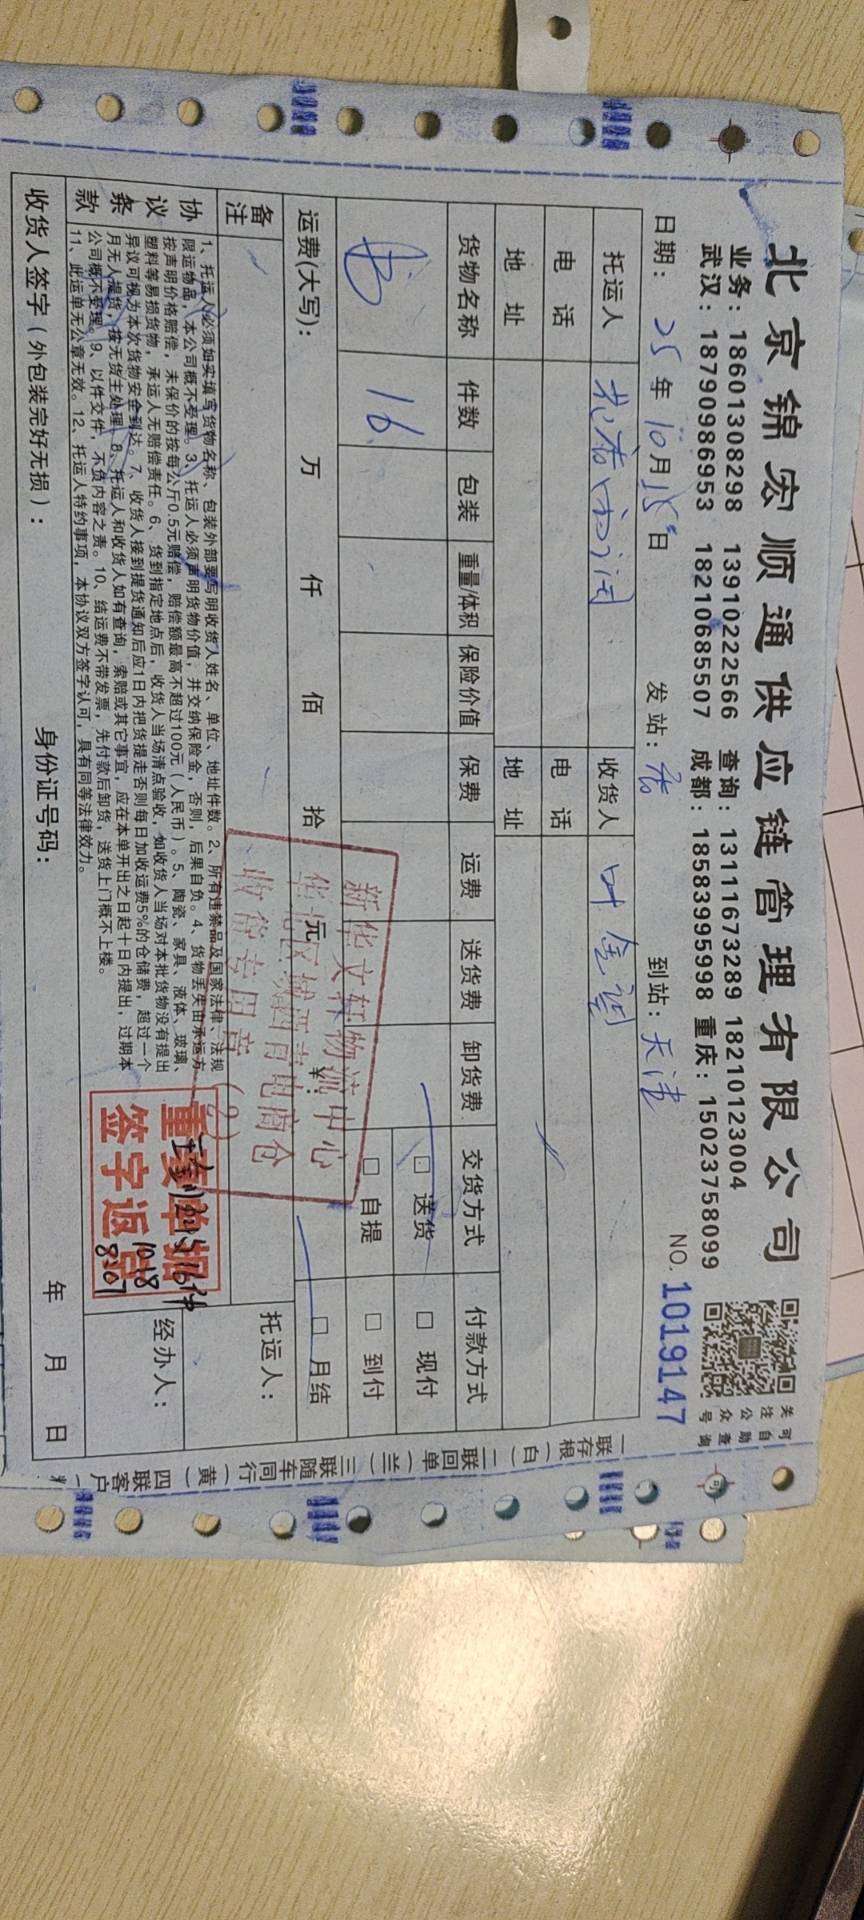 北京锦宏顺通供应链管理有限公司
业务：18601308298 13910222566 查询：13111673289 18210123004
武汉：18790986953 18210685507 成都：18583995998 重庆：15023758099
关注公众号
可自助查询
日期：25年10月15日 发站： 到站：天津 NO.1019147
托运人 收货人 叶金
电话 电话
地址 地址
货物名称 件数 包装 重量/体积 保险价值 保费 运费 送货费 卸货费 交货方式 付款方式
书 16 □送货 □自提 □现付 □到付 □月结
运费(大写)： 万 仟 佰 拾 元 ¥：
备注 托运人：
协议条款
1、托运人必须如实填写货物名称、包装外部要写明收货人姓名、单位、地址件数。2、所有违禁品及国家法律、法规
限运物品，本公司概不受理。3、托运人必须声明货物价值，并交纳保险金，否则，后果自负。4、货物丢失由承运方
按声明价格赔偿，未保价的按每公斤0.5元赔偿，赔偿额最高不超过100元（人民币）。5、陶瓷、家具、液体、玻璃、
塑料等易损货物，承运人无赔偿责任。6、货到指定地点后，收货人当场清点验收，如收货人当场对本批货物没有提出
异议可视为本次货物安全到达。7、收货人接到提货通知后应1日内把货提走否则每日加收运费5%的仓储费，超过一个
月无人提货，按无货主处理。8、托运人和收货人如有查询，索赔或其它事宜，应在本单开出之日起十日内提出，过期本
公司概不受理。9、以件交件，不负内容之责。10、结运费不带发票，先付款后卸货，送货上门概不上楼。
11、此运单无公章无效。12、托运人特约事项，本协议双方签字认可，具有同等法律效力。
经办人：
收货人签字（外包装完好无损）： 身份证号码： 年 月 日
新华文轩物流中心
收货专用章(2)
重要单据
签字返回
16件
1018
8307
一联存根(白) 二联回单(兰) 三联随车同行(黄) 四联客户